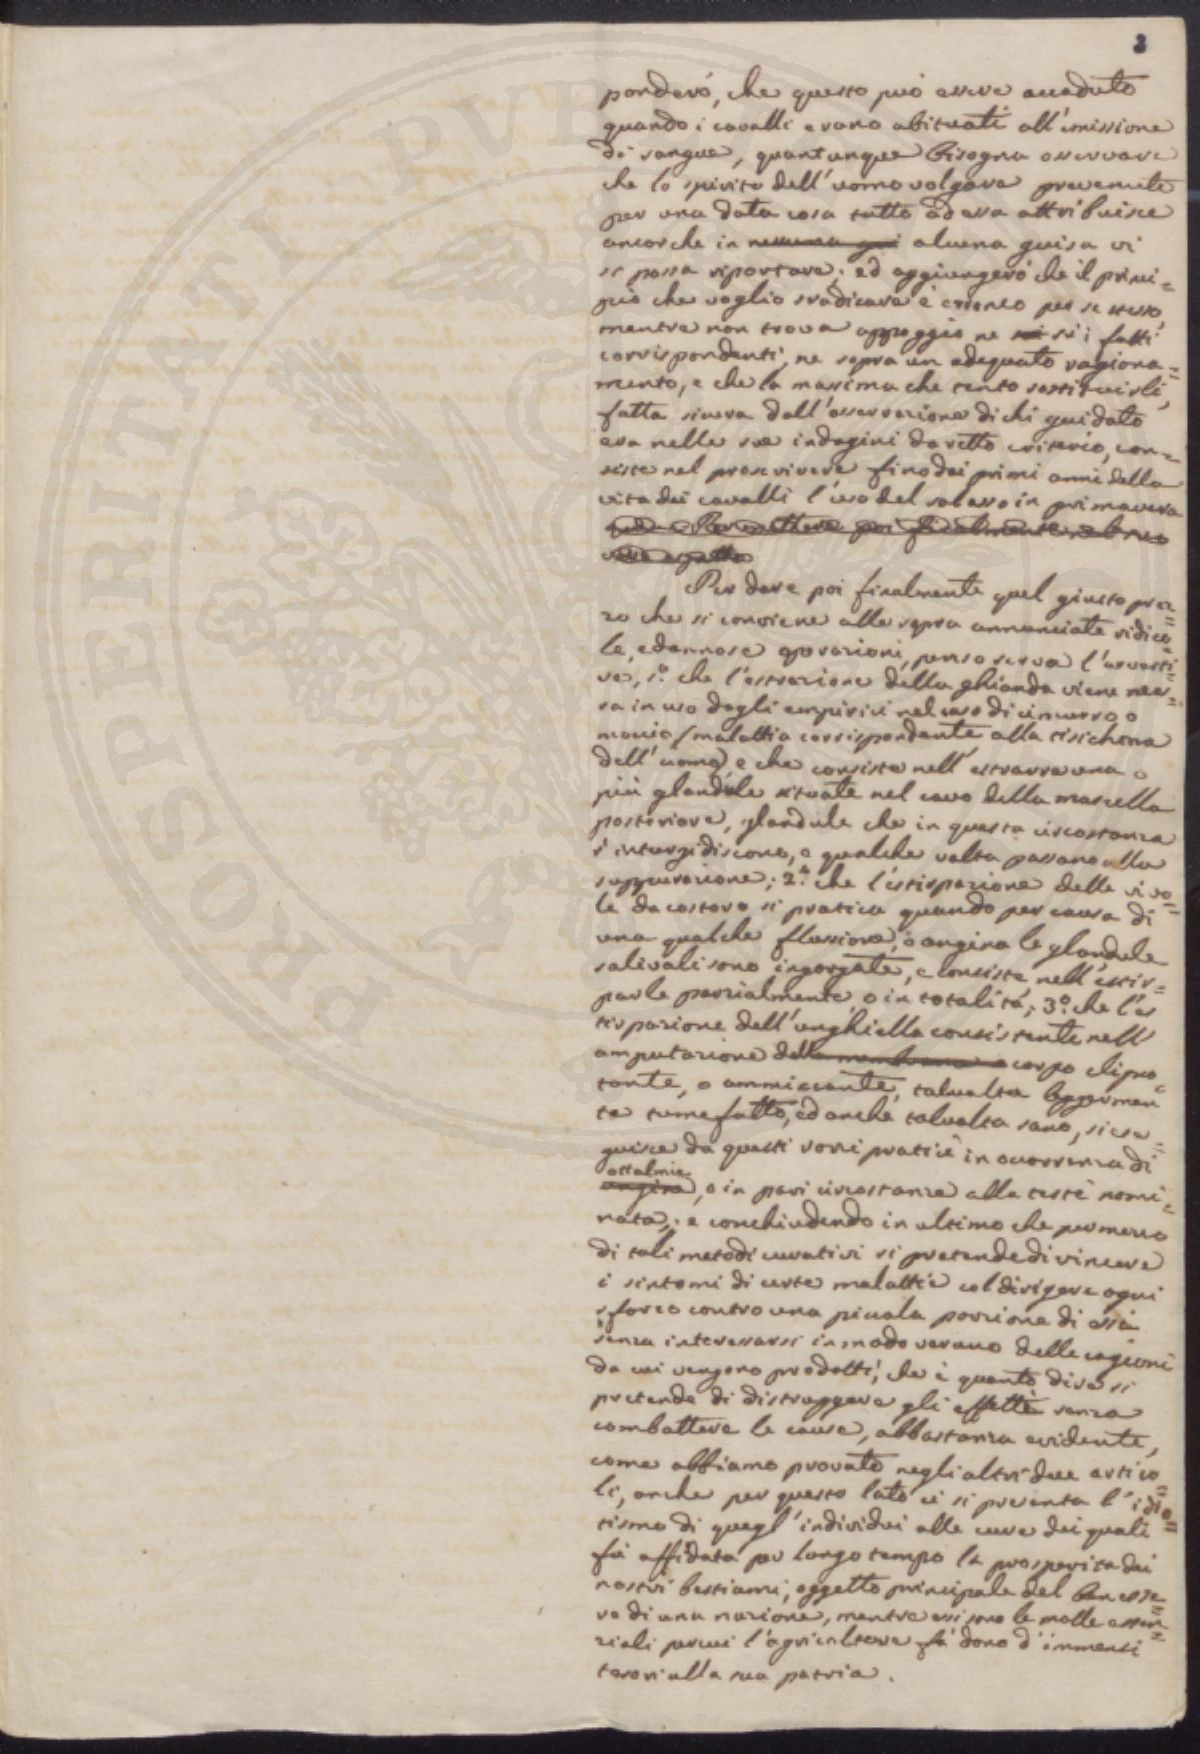 3
ponderò, che questo può essere accaduto
quando i cavalli erano abituati all'emissione
di sangue, quantunque bisogna osservare
che lo spirito dell'uomo volgare prevenuto
per una data cosa tutto ad essa attribuisce
ancorche in nessuna gui alcuna guisa vi
si possa riportare; ed aggiungerò che il princi=
pio che voglio sradicare è erroneo per se stesso,
mentre non trova appoggio ne su i fatti
corrispondenti, ne sopra un adequato ragiona=
mento, e che la massima che tento sostituirli,
fatta sicura dall'osservazione di chi guidato
era nelle sue indagini da retto criterio, con=
siste nel proscrivere fino dai primi anni della
vita dei cavalli l'uso del salasso in primavera
Per dare poi finalmente quel giusto prez=
zo che si conviene alle sopra annunciate ridico=
le, e dannose operazioni, penso serva l'avverti=
re, 1.º che l'estrazione della ghianda viene mes=
sa in uso dagli empirici nel caso di cimurro o
moccio (malattia corrispondente alla tisichezza
dell'uomo) e che consiste nell'estrarre una o
più glandule situate nel cavo della mascella
posteriore, glandule che in questa circostanza
s'inturgidiscono, e qualche volta passano alla
suppurazione; 2.º che l'estirpazione delle vivo=
le da costoro si pratica quando per causa di
una qualche flussione, o angina le glandule
salivali sono ingorgate, e consiste nell'estir=
parle parzialmente, o in totalità; 3.º che l'es
tirpazione dell'unghiella consistente nell'
amputazione della membrana o corpo clipeo=
tante, o ammiccante, talvolta leggermen
te tumefatto, ed anche talvolta sano, si ese=
guisce da questi rozzi pratici in occorrenza di
ottalmie
angina, o in pari circostanze alla testè nomi=
nata; e conchiudendo in ultimo che per mezzo
di tali metodi curativi si pretende di vincere
i sintomi di certe malattie col dirigere ogni
sforzo contro una piccola porzione di essi
senza interessarsi in modo veruno delle cagioni
da cui vengono prodotti; che è quanto dire si
pretende di distruggere gli effetti senza
combattere le cause, abbastanza evidente,
come abbiamo provato negli altri due artico=
li, anche per questo lato ci si presenta l'idio=
tismo di quegl'individui alle cure dei quali
fù affidata per lungo tempo la prosperità dei
nostri bestiami, oggetto principale del ben esse=
re di una nazione, mentre essi sono le molle essen=
ziali per cui l'agricoltura fà dono d'immensi
tesori alla sua patria.
PROSPERITATI PUB